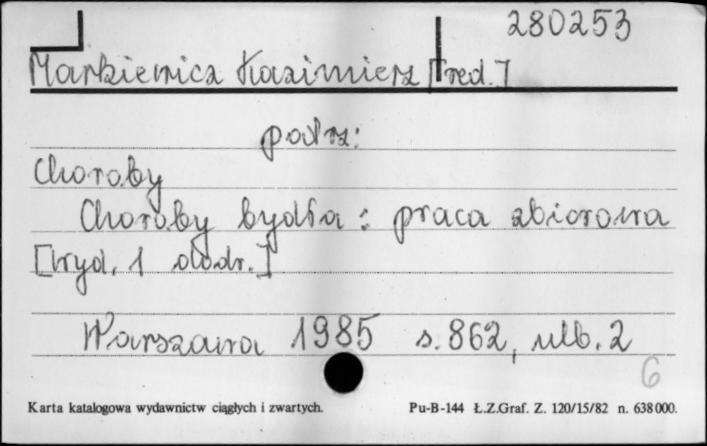 280253
Markiewicz Kazimierz [red.]
patrz:
Choroby
Choroby bydła : praca zbiorowa
[wyd. 1 dodr.]
Warszawa 1985 s. 862, nlb. 2
6
Karta katalogowa wydawnictw ciągłych i zwartych. Pu-B-144 Ł.Z.Graf. Z. 120/15/82 n. 638000.